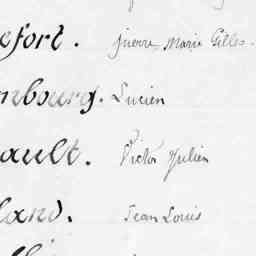 efort. Pierre Marie Gilles.
nbourg. Lucien
ault. Victor Julien
land. Jean Louis